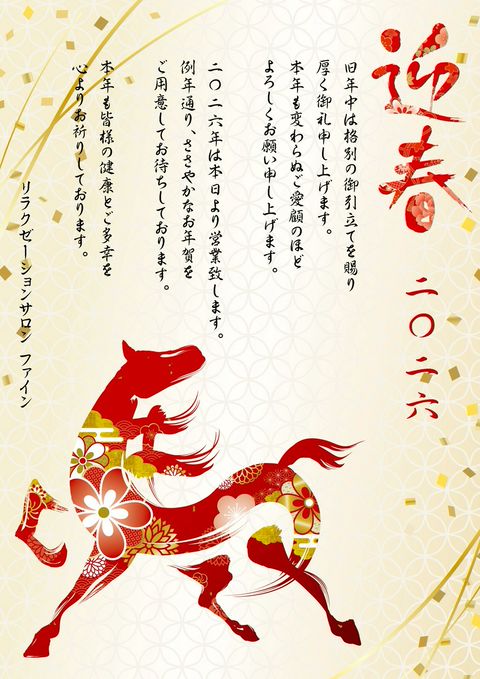 迎春
二〇二六
旧年中は格別の御引立てを賜り
厚く御礼申し上げます。
本年も変わらぬご愛顧のほど
よろしくお願い申し上げます。
二〇二六年は本日より営業致します。
例年通り、ささやかなお年賀を
ご用意してお待ちしております。
本年も皆様の健康とご多幸を
心よりお祈りしております。
リラクゼーションサロン ファイン